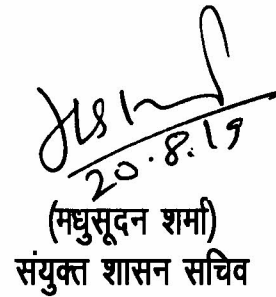 20.8.19
(मधुसूदन शर्मा)
संयुक्त शासन सचिव